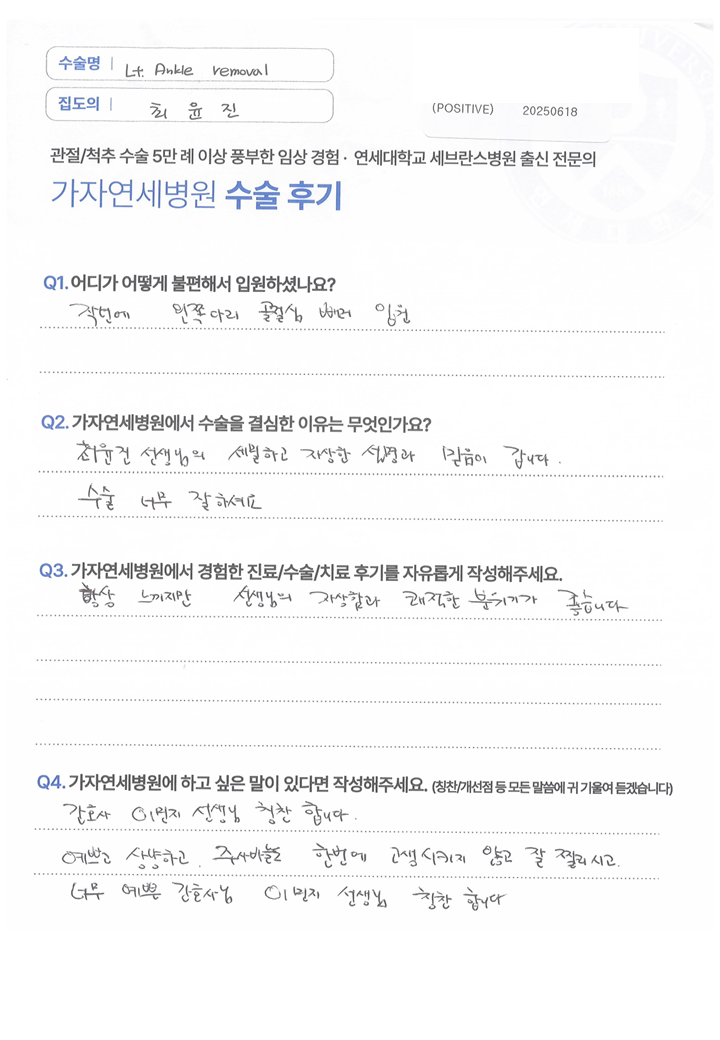 수술명 | Lt. Ankle removal
집도의 | 최윤진
(POSITIVE) 20250618
관절/척추 수술 5만 례 이상 풍부한 임상 경험 · 연세대학교 세브란스병원 출신 전문의
가자연세병원 수술 후기
Q1. 어디가 어떻게 불편해서 입원하셨나요?
작년에 왼쪽다리 골절심 빼러 입원
Q2. 가자연세병원에서 수술을 결심한 이유는 무엇인가요?
최윤진 선생님의 세밀하고 자상한 설명과 믿음이 갑니다.
수술 너무 잘하셔요
Q3. 가자연세병원에서 경험한 진료/수술/치료 후기를 자유롭게 작성해주세요.
항상 느끼지만 선생님의 자상함과 쾌적한 분위기가 좋습니다
Q4. 가자연세병원에 하고 싶은 말이 있다면 작성해주세요. (칭찬/개선점 등 모든 말씀에 귀 기울여 듣겠습니다)
간호사 이민지 선생님 칭찬 합니다.
예쁘고 상냥하고. 주사바늘도 한번에 고생시키지 않고 잘 찔러시고.
너무 예쁜 간호사님 이민지 선생님 칭찬 합니다